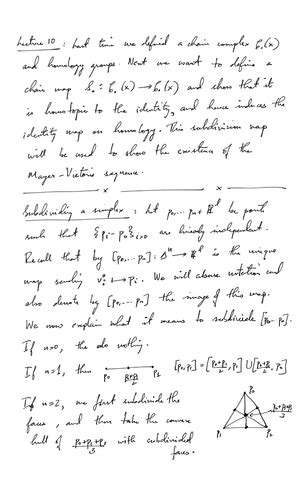 Lecture 10 : Last time we defined a chain complex C.(X)
and homology groups. Next we want to define a
chain map S. : C.(X) → C.(X) and show that it
is homotopic to the identity, and hence induces the
identity map on homology. This subdivision map
will be used to show the existence of the
Mayer-Vietoris sequence.
Subdividing a simplex : Let p₀,...pₙ ∈ ℝˡ be points
such that {pᵢ - p₀}ᵢ>₀ are linearly independent.
Recall that by [p₀,...pₙ] : Δⁿ → ℝˡ is the unique
map sending vᵢ ↦ pᵢ. We will abuse notation and
also denote by [p₀,...pₙ] the image of this map.
We now explain what it means to subdivide [p₀...pₙ].
If n=0, the do nothing.
If n=1, then p₀ (p₀+p₁)/2 p₁ [p₀,p₁] = [(p₀+p₁)/2, p₀] ∪ [(p₀+p₁)/2, p₁]
If n=2, we first subdivide the
faces, and then take the convex
hull of (p₀+p₁+p₂)/3 with subdivided
faces.
p₀
(p₀+p₁+p₂)/3
p₁ p₂